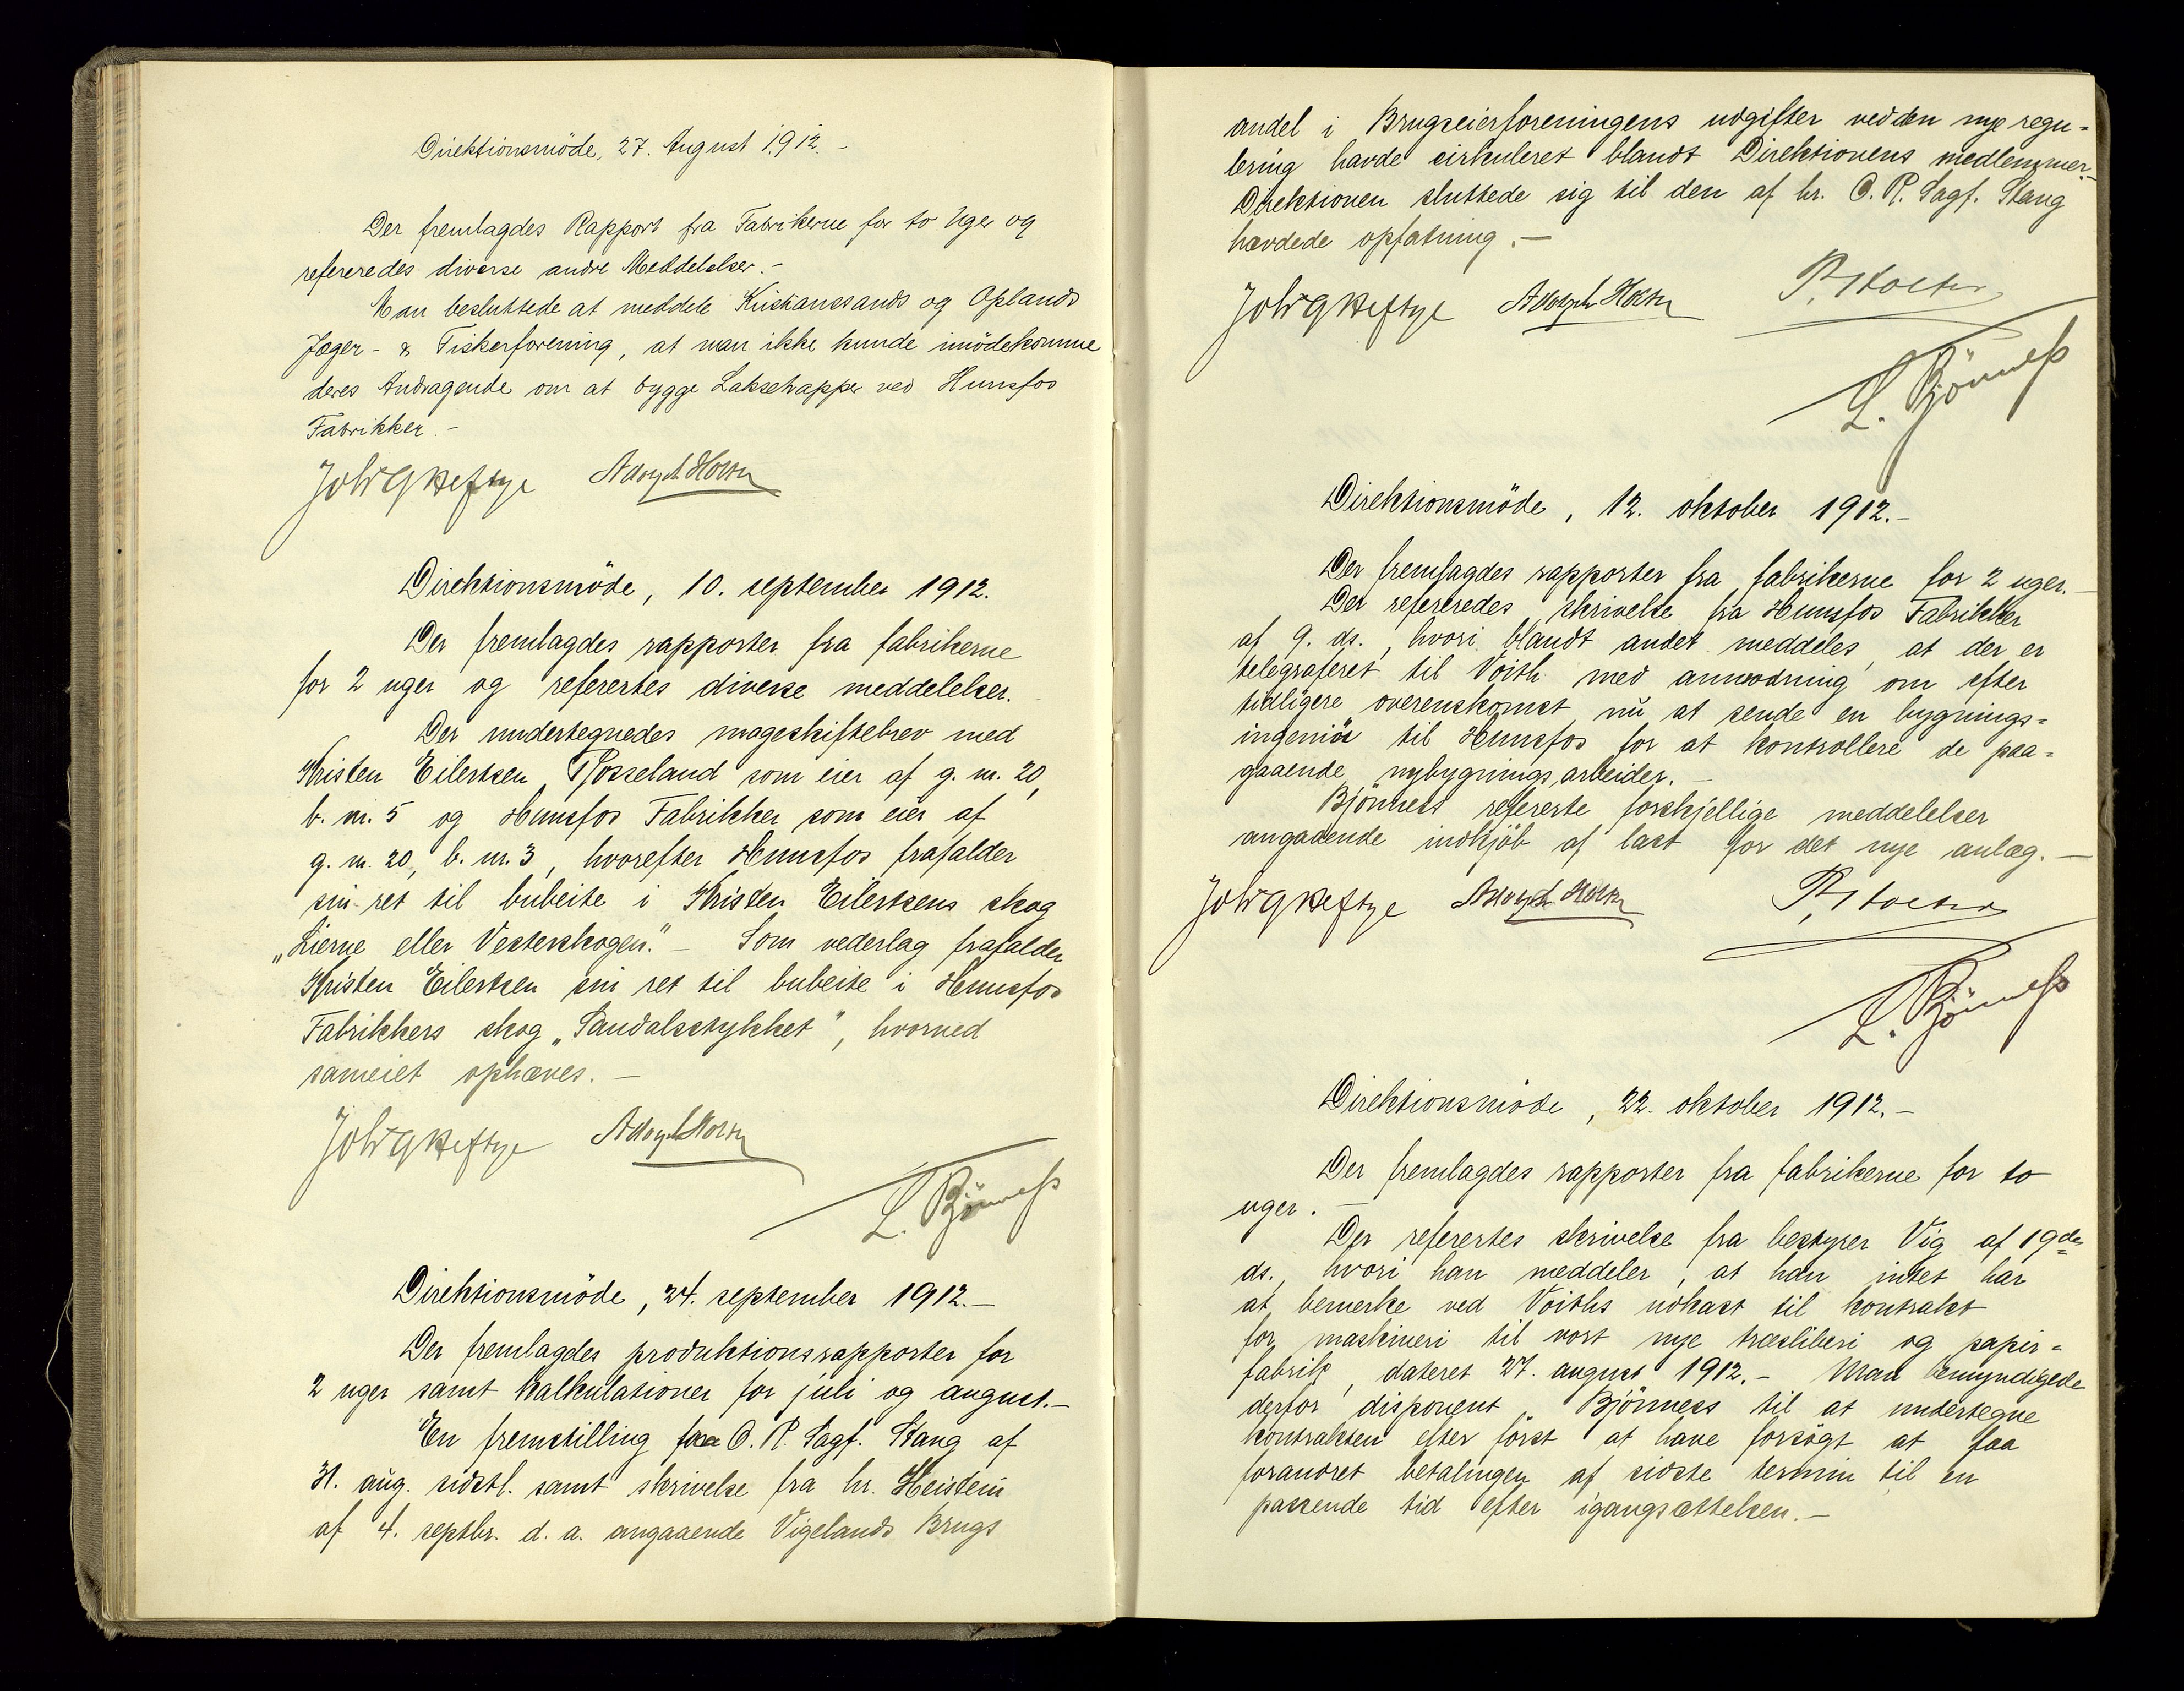 Direktionsmöde, 27. August 1912. -
Der fremlagdes Rapport fra Fabrikerne for to Uger og
refereredes diverse andre Meddelelser. -
Man besluttede at meddele Kristianssands og Oplands
Jæger- & Fiskerforening, at man ikke kunde imödekomme
deres Andragende om at bygge Laksetrapper ved Hunsfos
Fabrikker. -
Joh. G Heftye Adolph Holth
Direktionsmöde, 10. september 1912.
Der fremlagdes rapporter fra fabrikerne
for 2 uger og referertes diverse meddelelser.
Der undertegnedes mageskiftebrev med
Kristen Eilertsen Mosseland som eier af g. nr. 20,
b. nr. 5 og Hunsfos Fabrikker som eier af
g. nr. 20, b. nr. 3, hvorefter Hunsfos frafalder
sin ret til bubeite i Kristen Eilertsens skog
„Lierne eller Vesterskogen." - Som vederlag frafalder
Kristen Eilertsen sin ret til bubeite i Hunsfos
Fabrikkers skog „Sandalsstykket", hvorved
sameiet ophæves. -
Joh. G Heftye Adolph Holth
L. Bjönness
Direktionsmöde, 24. september 1912. -
Der fremlagdes produktionsrapporter for
2 uger samt kalkulationer for juli og august. -
En fremstilling fra O. R. Sagf. Stang af
31. aug. sidstl. samt skrivelse fra hr. Heistein
af 4. septbr. d. a. angaaende Vigelands Brugs
andel i Brugseierforeningens udgifter ved den nye regu-
lering havde cirkuleret blandt Direktionens medlemmer. -
Direktionen sluttede sig til den af hr. O. R. Sagf. Stang
hævdede opfatning. -
Joh. G Heftye Adolph Holth
L. Bjönness
Direktionsmöde, 12. oktober 1912. -
Der fremlagdes rapporter fra fabrikerne for 2 uger. -
Der refereredes skrivelse fra Hunsfos Fabrikker
af 9. ds., hvori blandt andet meddeles, at der er
telegraferet til Voith med anmodning om efter
tidligere overenskomst nu at sende en bygnings-
ingeniör til Hunsfos for at kontrollere de paa-
gaaende nybygningsarbeider. -
Bjönness refererte forskjellige meddelelser
angaaende indkjöb af last for det nye anlæg. -
Joh. G Heftye Adolph Holth
L. Bjönness
Direktionsmöde, 22. oktober 1912. -
Der fremlagdes rapporter fra fabrikerne for to
uger. -
Der referertes skrivelse fra bestyrer Vig af 19de
ds., hvori han meddeler, at han intet har
at bemerke ved Voiths udkast til kontrakt
for maskineri til vort nye træsliberi og papir-
fabrik, dateret 27. august 1912. - Man bemyndigede
derfor disponent Bjönness til at undertegne
kontrakten efter först at have forsögt at faa
forandret betalingen af sidste termin til en
passende tid efter igangsættelsen. -